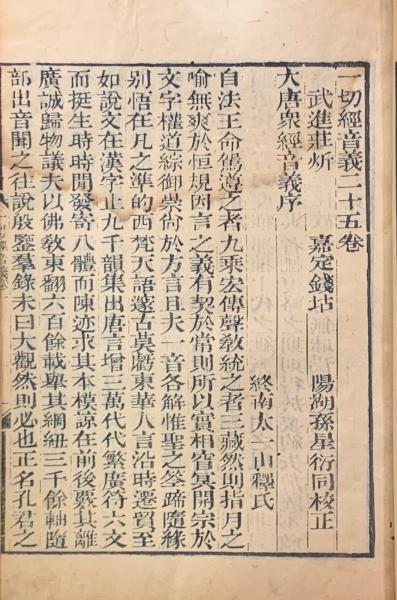 一切經音義二十五卷
武進莊炘 嘉定錢坫 陽湖孫星衍同校正
大唐衆經音義序
終南太一山釋氏
自法王命駕遵之者九乘宏傳聲敎統之者三藏然則指月之
喻無爽於恒規因言之義有契於常則所以實相窅冥開宗於
文字權道綜御崇尙於方言且夫一音各解惟聖之筌蹄隨緣
别悟在凡之準的西梵天語邃古莫虧東華人言沿時遷貿至
如說文在漢字止九千韻集出唐言增三萬代代繁廣符六文
而挺生時時閒發寄八體而陳迹求其本模諒在前後覈其離
廣誠歸物議夫以佛敎東翻六百餘載舉其綱紐三千餘軸隨
部出音聞之往說殷鑒羣錄未曰大觀然則必也正名孔君之